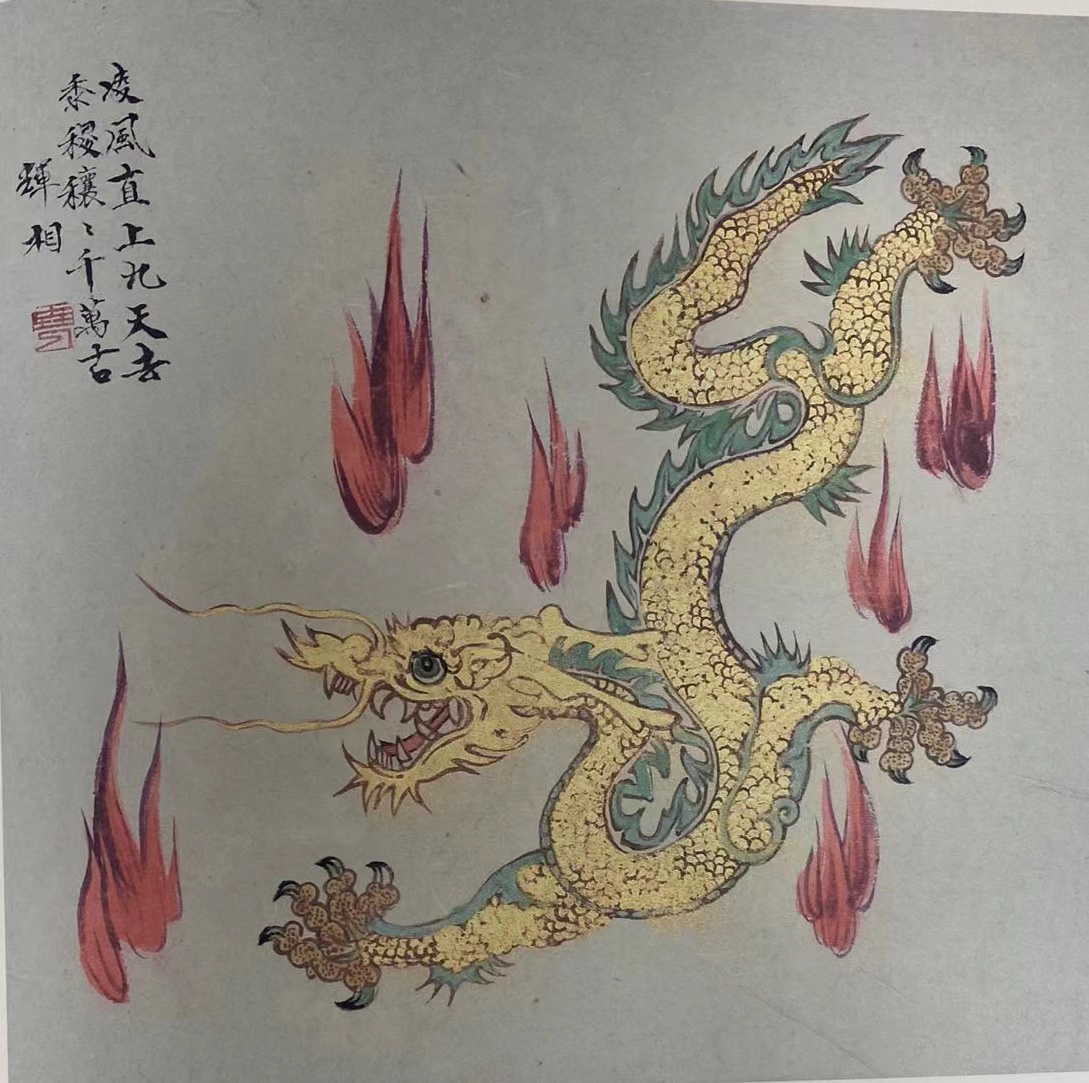 凌風直上九天去
黍稷穰〻千萬古
輝相